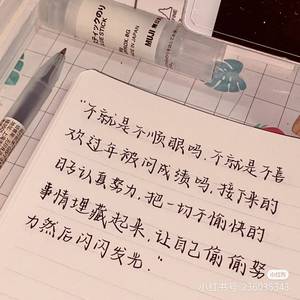 スティックのり
GLUE STICK
MADE IN JAPAN
MUJI 無印
"不就是不顺眼吗,不就是不喜
欢过年被问成绩吗,接下来的
日子认真努力,把一切不愉快的
事情埋藏起来,让自己偷偷努
力然后闪闪发光."
小红书
小红书号:236035343